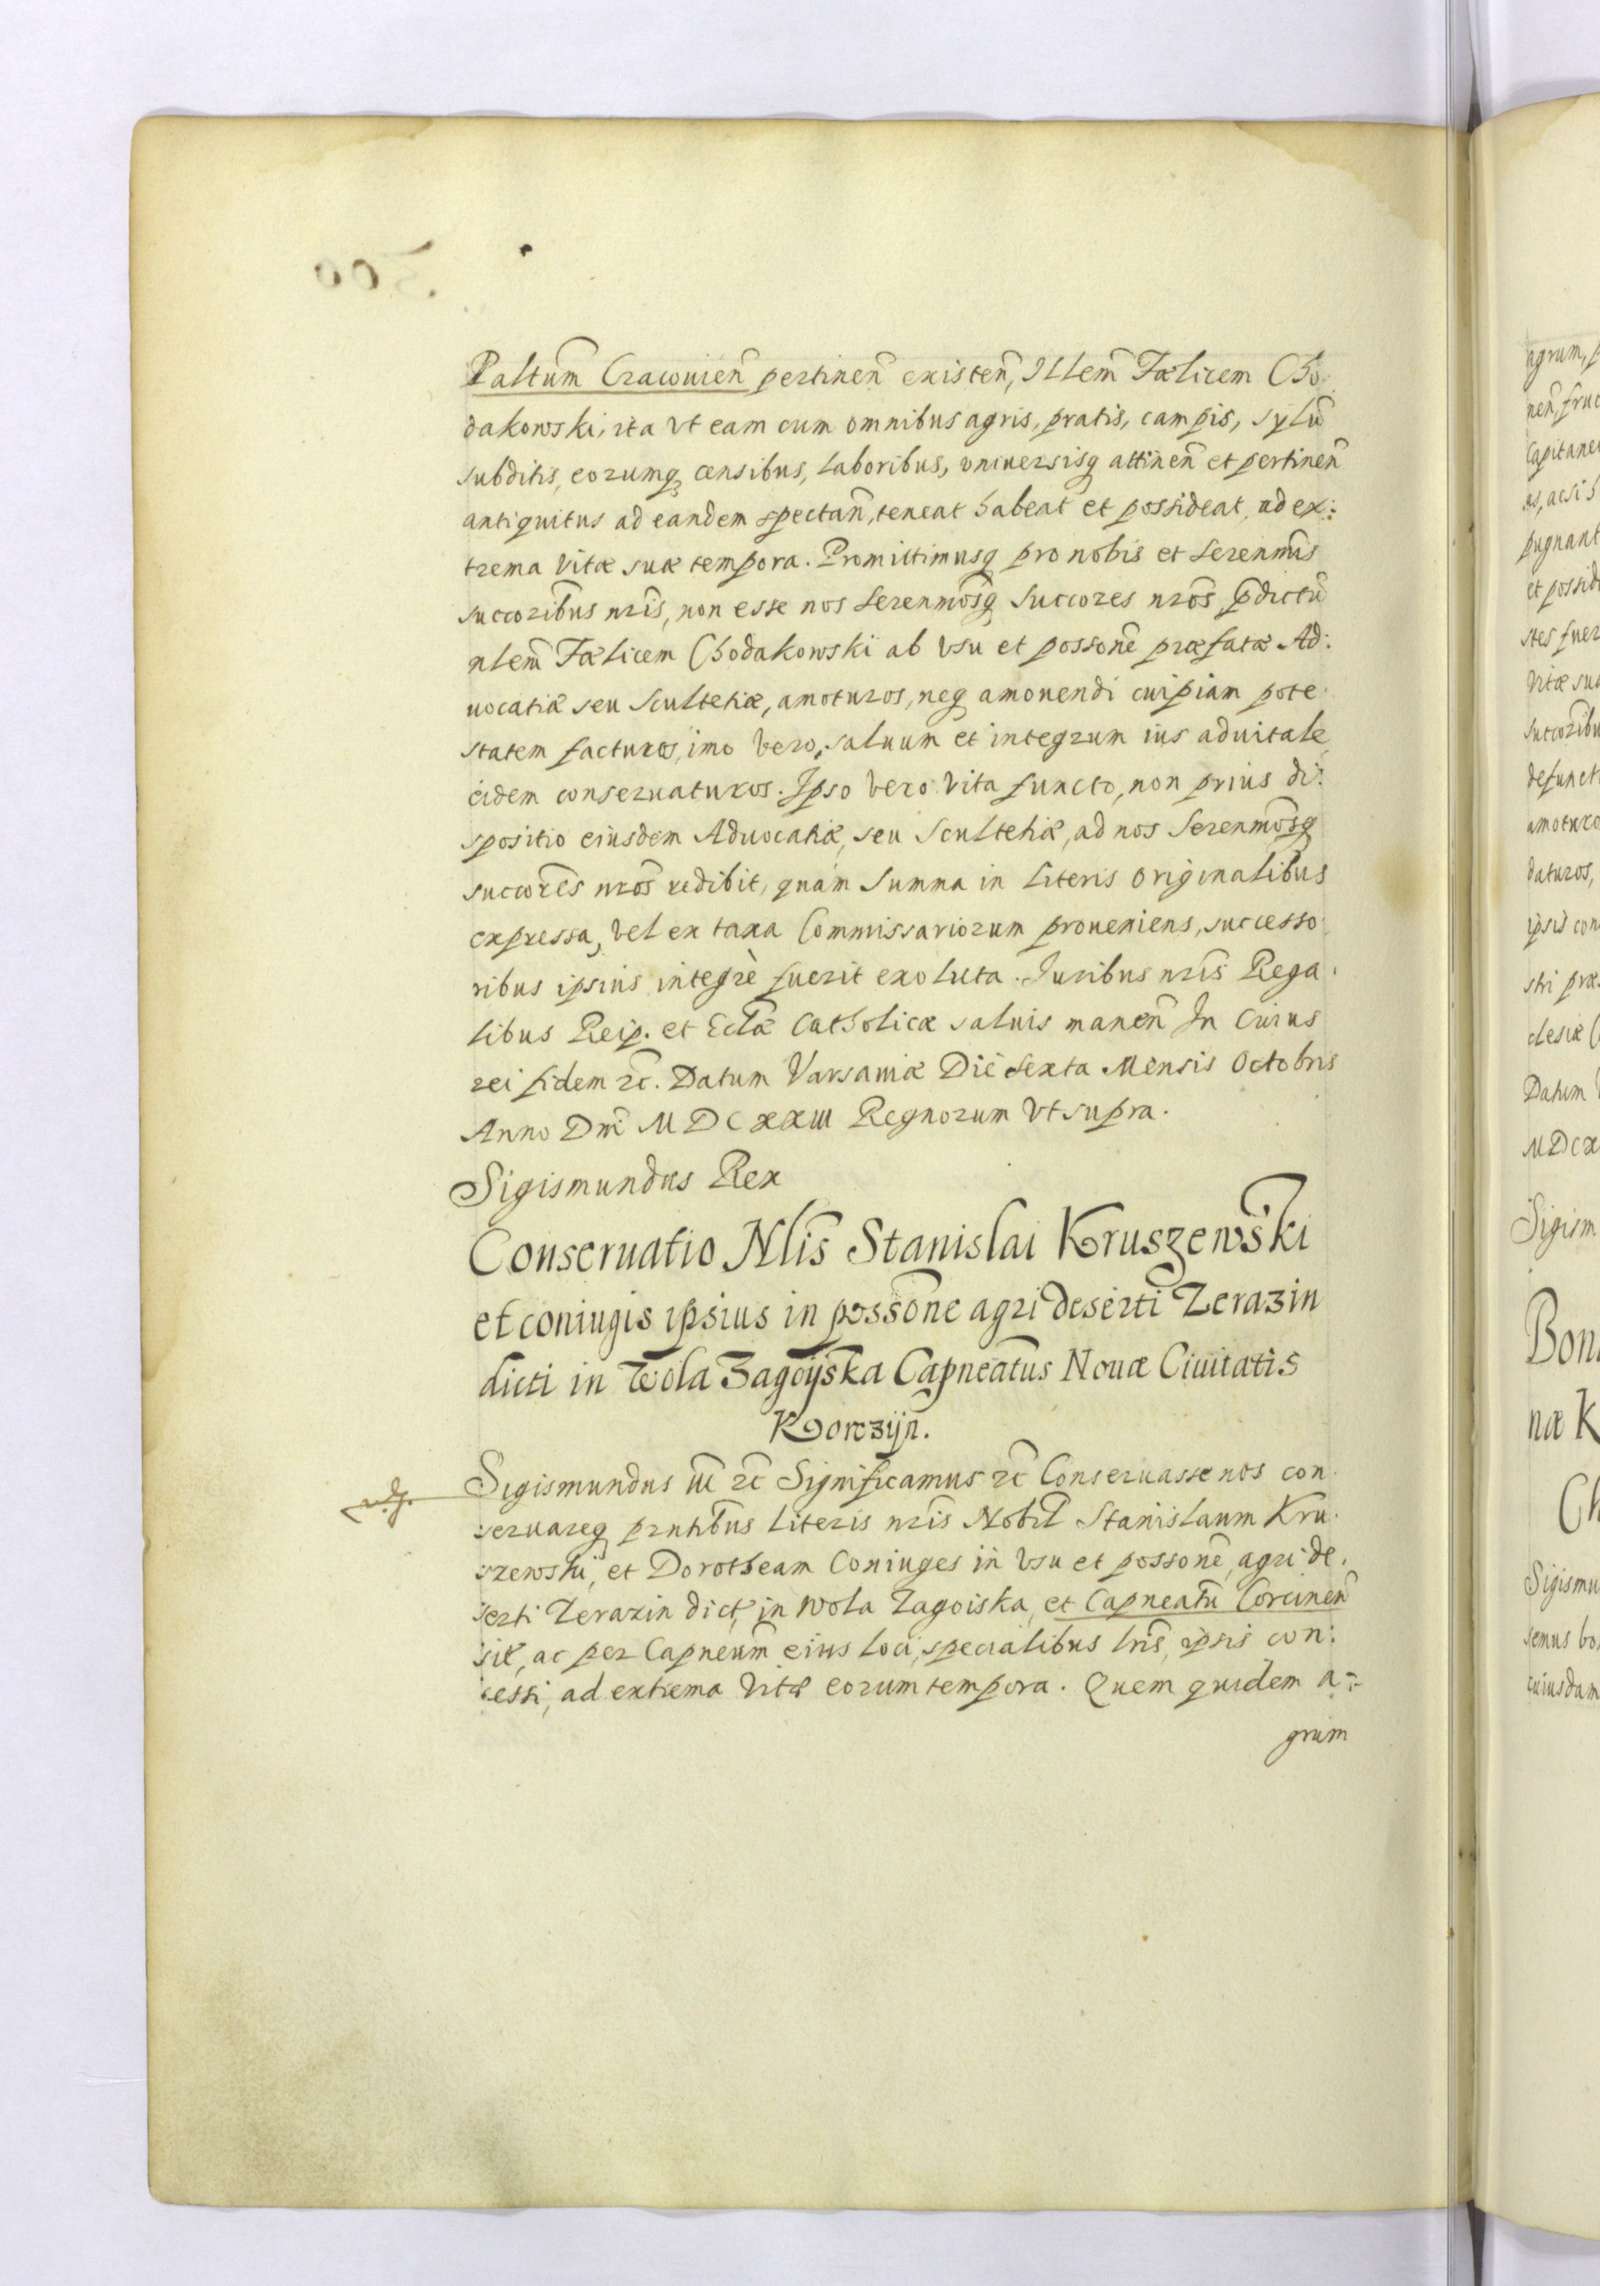 Paltum̃ Cracouien̄ pertinen̄ existen̄, Illem̄ Fælicem Cho
dakowski, ita vt eam cum omnibus agris, pratis, campis, sylū
subditis, eorumq censibus, laboribus, vniuersisq attinen̄ et pertinen̄
antiquitus ad eandem spectan̄, teneat habeat et possideat, ad ex:
trema vitæ suæ tempora. Promittimusq pro nobis et Serenmis̄
succoribus nris̄, non esse nos Serenmosq̄ Succores nros̄ p̄dictū
nlem̄ Fælicem Chodakowski ab vsu et possonē præfatæ Ad:
uocatiæ seu Scultetiæ, amoturos, neq amouendi cuipiam pote
statem facturos, imo vero, saluum et integrum ius aduitale
eidem conseruaturos. Ipso vero vita functo, non prius di:
spositio eiusdem Aduocatiæ, seu Scultetiæ, ad nos Serenmosq̄
succores̄ nros̄ redibit, quam Summa in Literis originalibus
expressa, vel ex taxa Commissariorum proueniens, successo
ribus ipsius integrè fuerit exoluta. Iuribus nris̄ Rega
libus Reip. et Eclǣ Catholicæ saluis manen̄ In Cuius
rei fidem rc̄. Datum Varsauiæ Die Sexta Mensis Octobris
Anno Dni̅ MDCXXIII Regnorum vt supra.
Sigismundus Rex
Conseruatio Nlis̄ Stanislai Kruszewski
et coniugis ipsius in possone̅ agri deserti Zerazin
dicti in Wola Zagoÿska Capneatus̄ Nouæ Ciuitatis
Korczÿn̄.
Sigismundus III rc̄ Significamus rc̄ Conseruasse nos con
seruareq prntibus̄ Literis nris̄ Nobil̄ Stanislaum Kru
szewski, et Dorotheam Coniuges in vsu et possone̅ agri de
serti Zerazin dict, in Wola Zagoiska, et Capneatū Corcinen̄
sie, ac per Capneum̄ eius loci, specialibus lris̄, ipsis con:
cessi, ad extrema vitæ eorum tempora. Quem quidem a:
grum